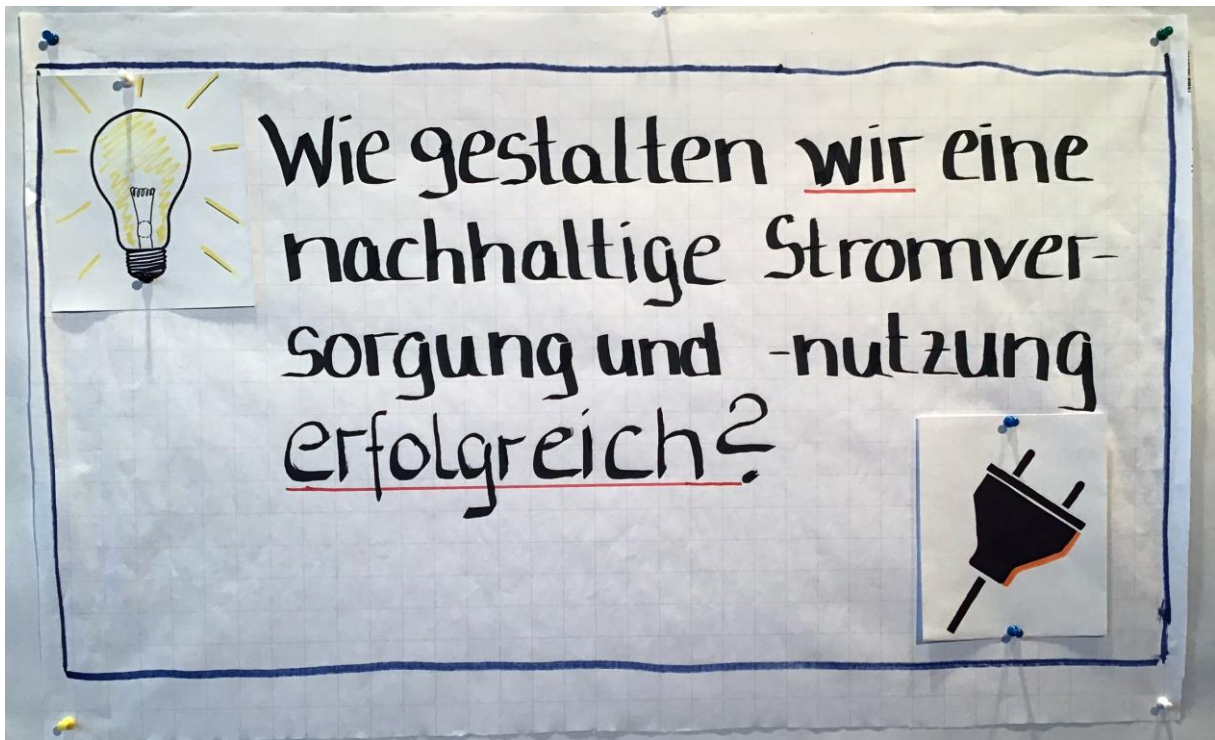 Wie gestalten wir eine
nachhaltige Stromver-
sorgung und -nutzung
erfolgreich?